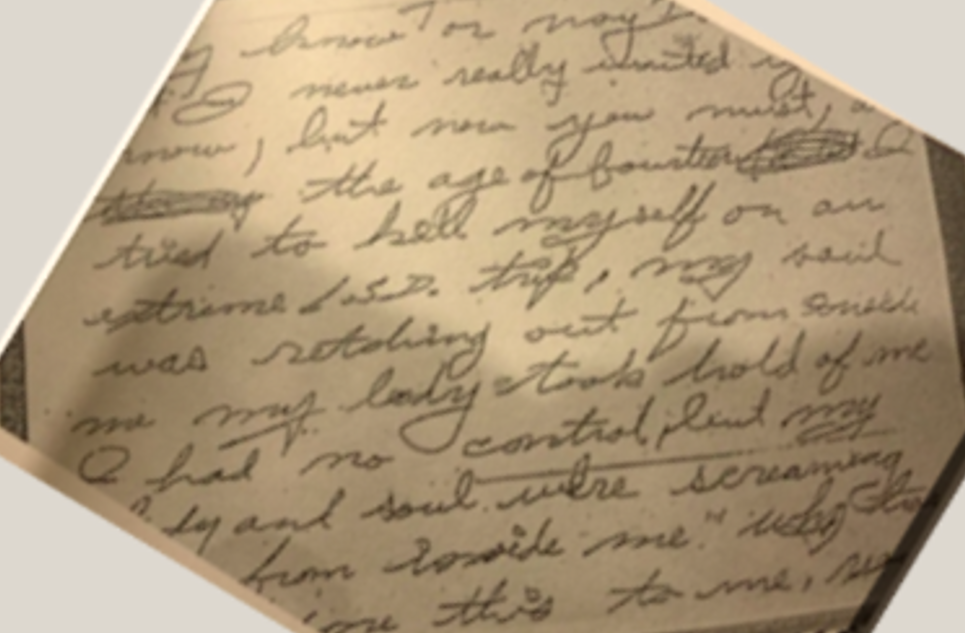 know or not
I never really wanted
know, but now you must,
the age of fourteen I
tried to kill myself on an
extreme L.S.D. trip, my soul
was retching out from inside
me my body stook hold of me
I had no control, but my
and soul were screaming
from inside me " why
me this to me,